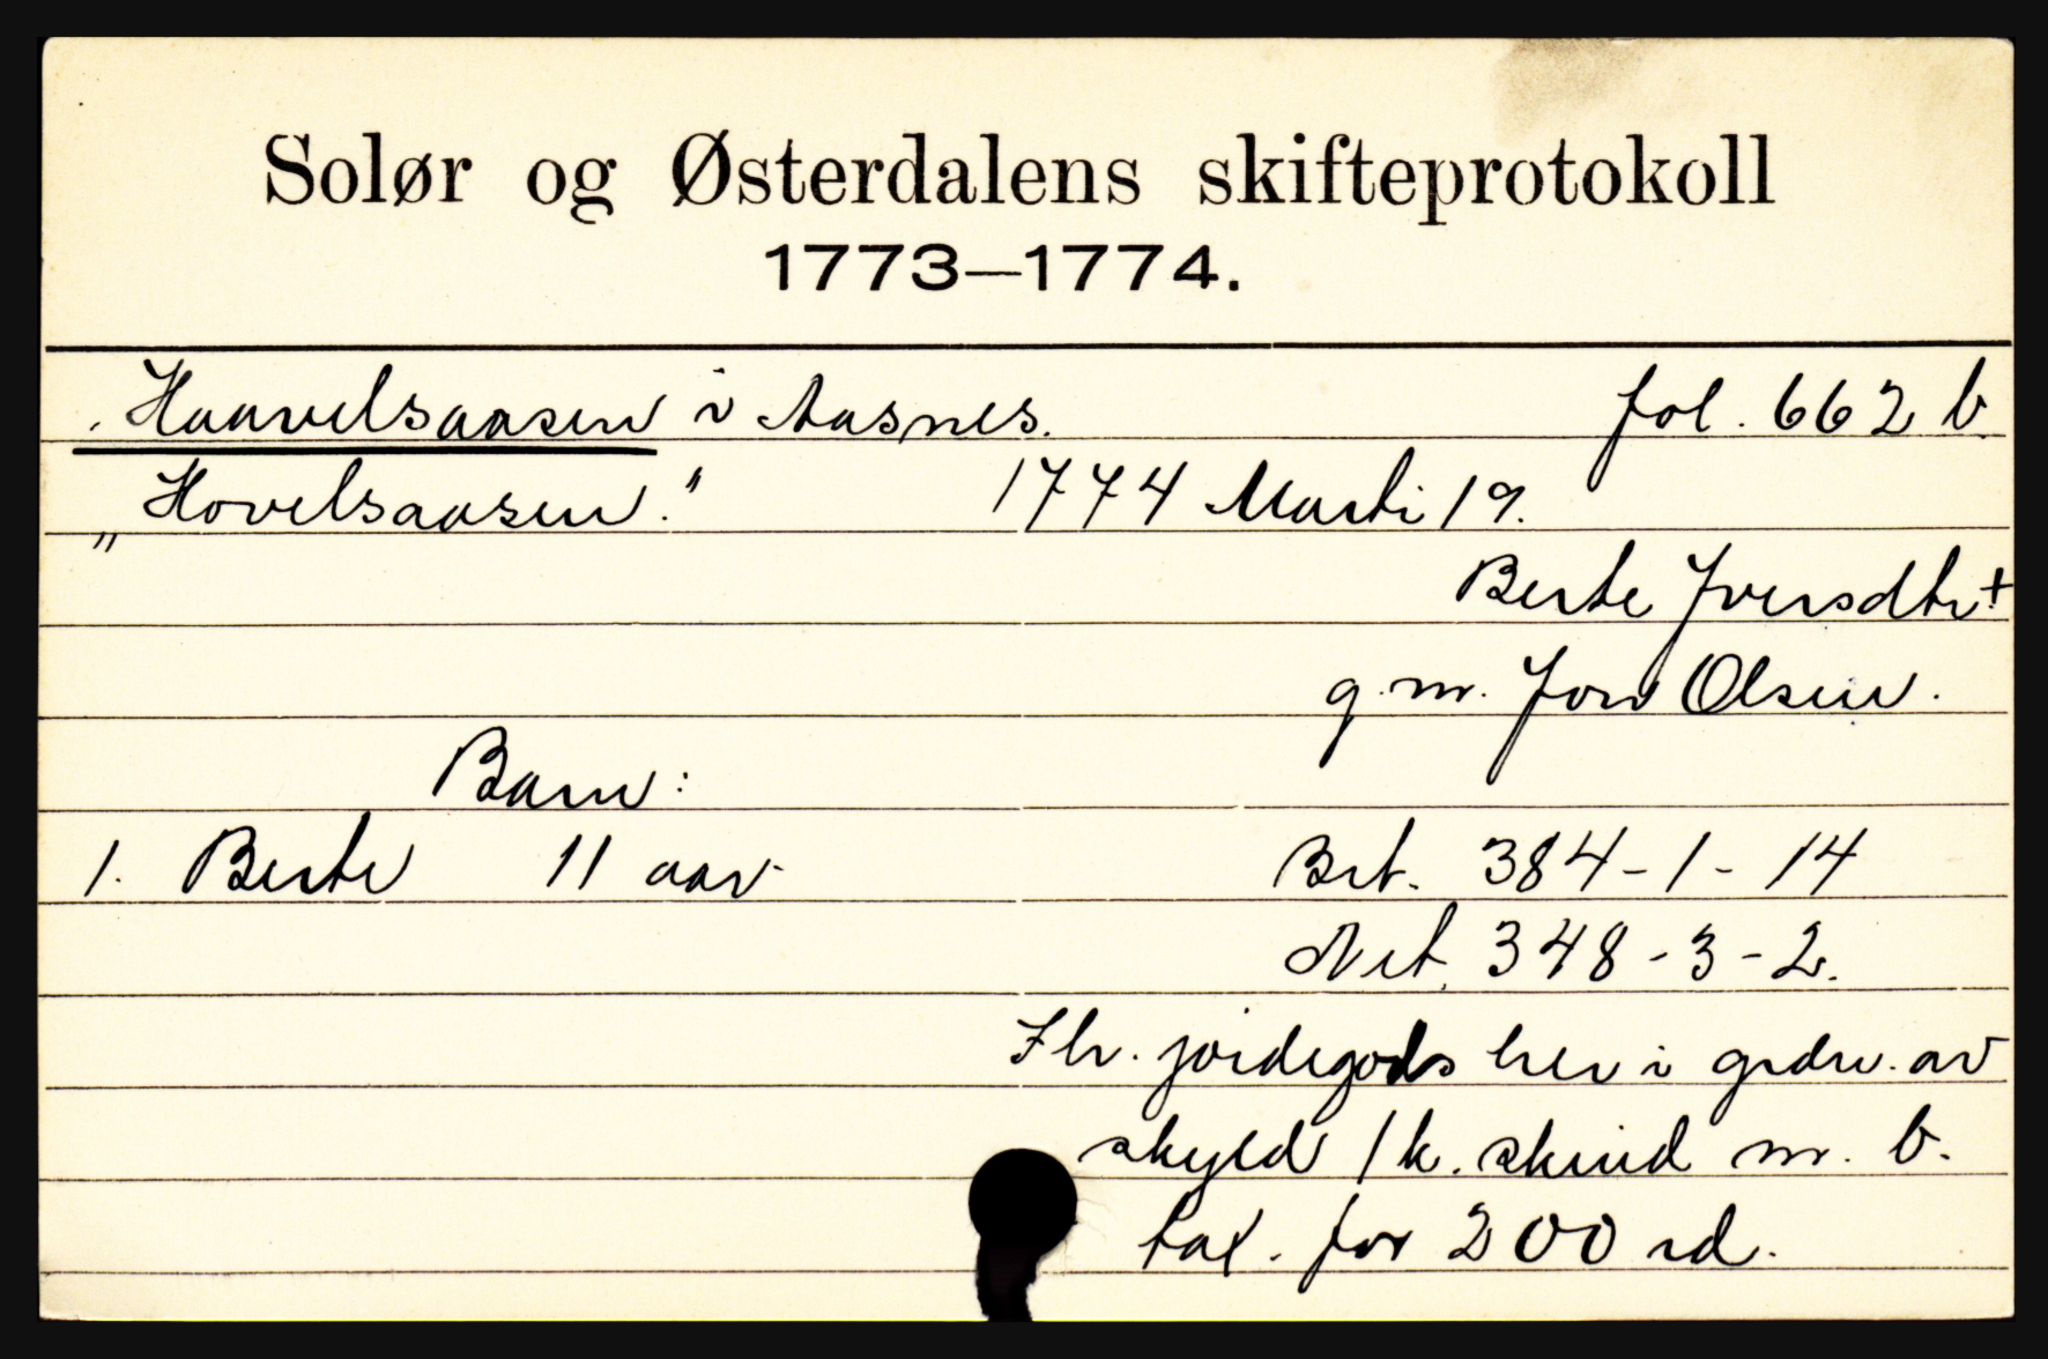 Solør og Østerdalens skifteprotokoll
1773—1774.
Haavelsaasen i Aasnes. fol. 662 b
„Hovelsaasen." 1774 Marti 19.
Berte Iversdtr +
g. m. Jon Olsen.
Barn:
1. Berte 11 aar Brt. 384-1-14
Net. 348-3-2.
Ihr. jordegods her i grdn. av
skyld 1 k. skind m. b.
tax. for 200 rd.